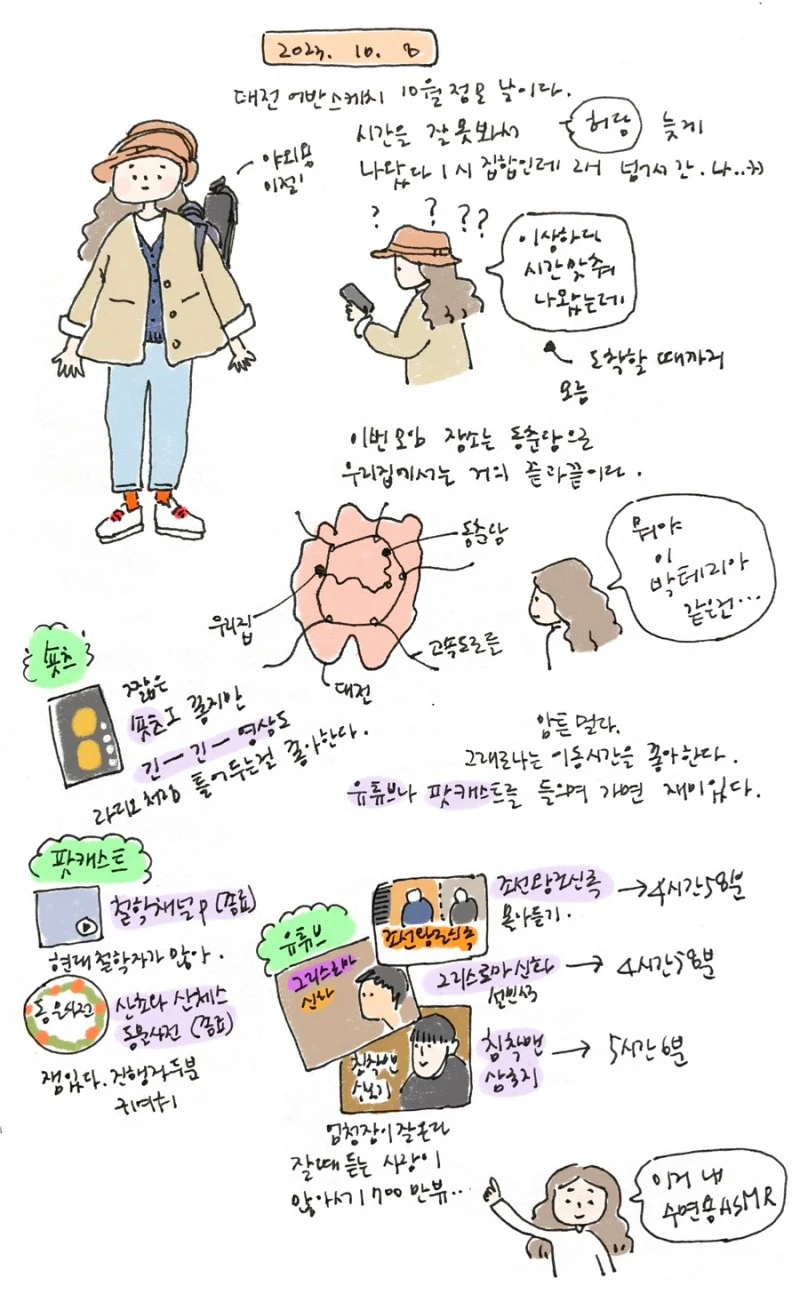 2023. 10. 8
대전 어반스케치 10월 정모 날이다.
시간을 잘못봐서 허당 늦게
나왔다 1시 집합인데 2시 넘겨서 간.나..ㅋㅋ
야외용
이젤!
? ? ??
이상하다
시간 맞춰
나왔는데
도착할 때까지
모름
이번모임 장소는 동춘당으로
우리집에서는 거의 끝과끝이다.
동춘당
우리집
고속도로들
대전
뭐야
이
박테리아
같은건...
숏츠
짧은
숏츠도 좋지만
긴ㅡ긴ㅡ영상도
라디오처럼 틀어두는걸 좋아한다.
암튼 멀다.
그래도나는 이동시간을 좋아한다.
유튜브나 팟캐스트를 들으며 가면 재미있다.
팟캐스트
철학채널 P (종료)
현대철학자가 많아.
동물사전
산초와 산체스
동물사전 (종료)
잼있다. 진행자두분
귀여워
유튜브
조선왕조실록
조선왕조실록
몰아듣기.
→4시간58분
그리스로마
신화
그리스로마 신화
설민석
→ 4시간58분
침착맨
삼국지
침착맨
삼국지
→ 5시간6분
엄청잠이잘온다
잘때 듣는 사람이
많아서 1700만뷰...
이거 내
수면용ASMR